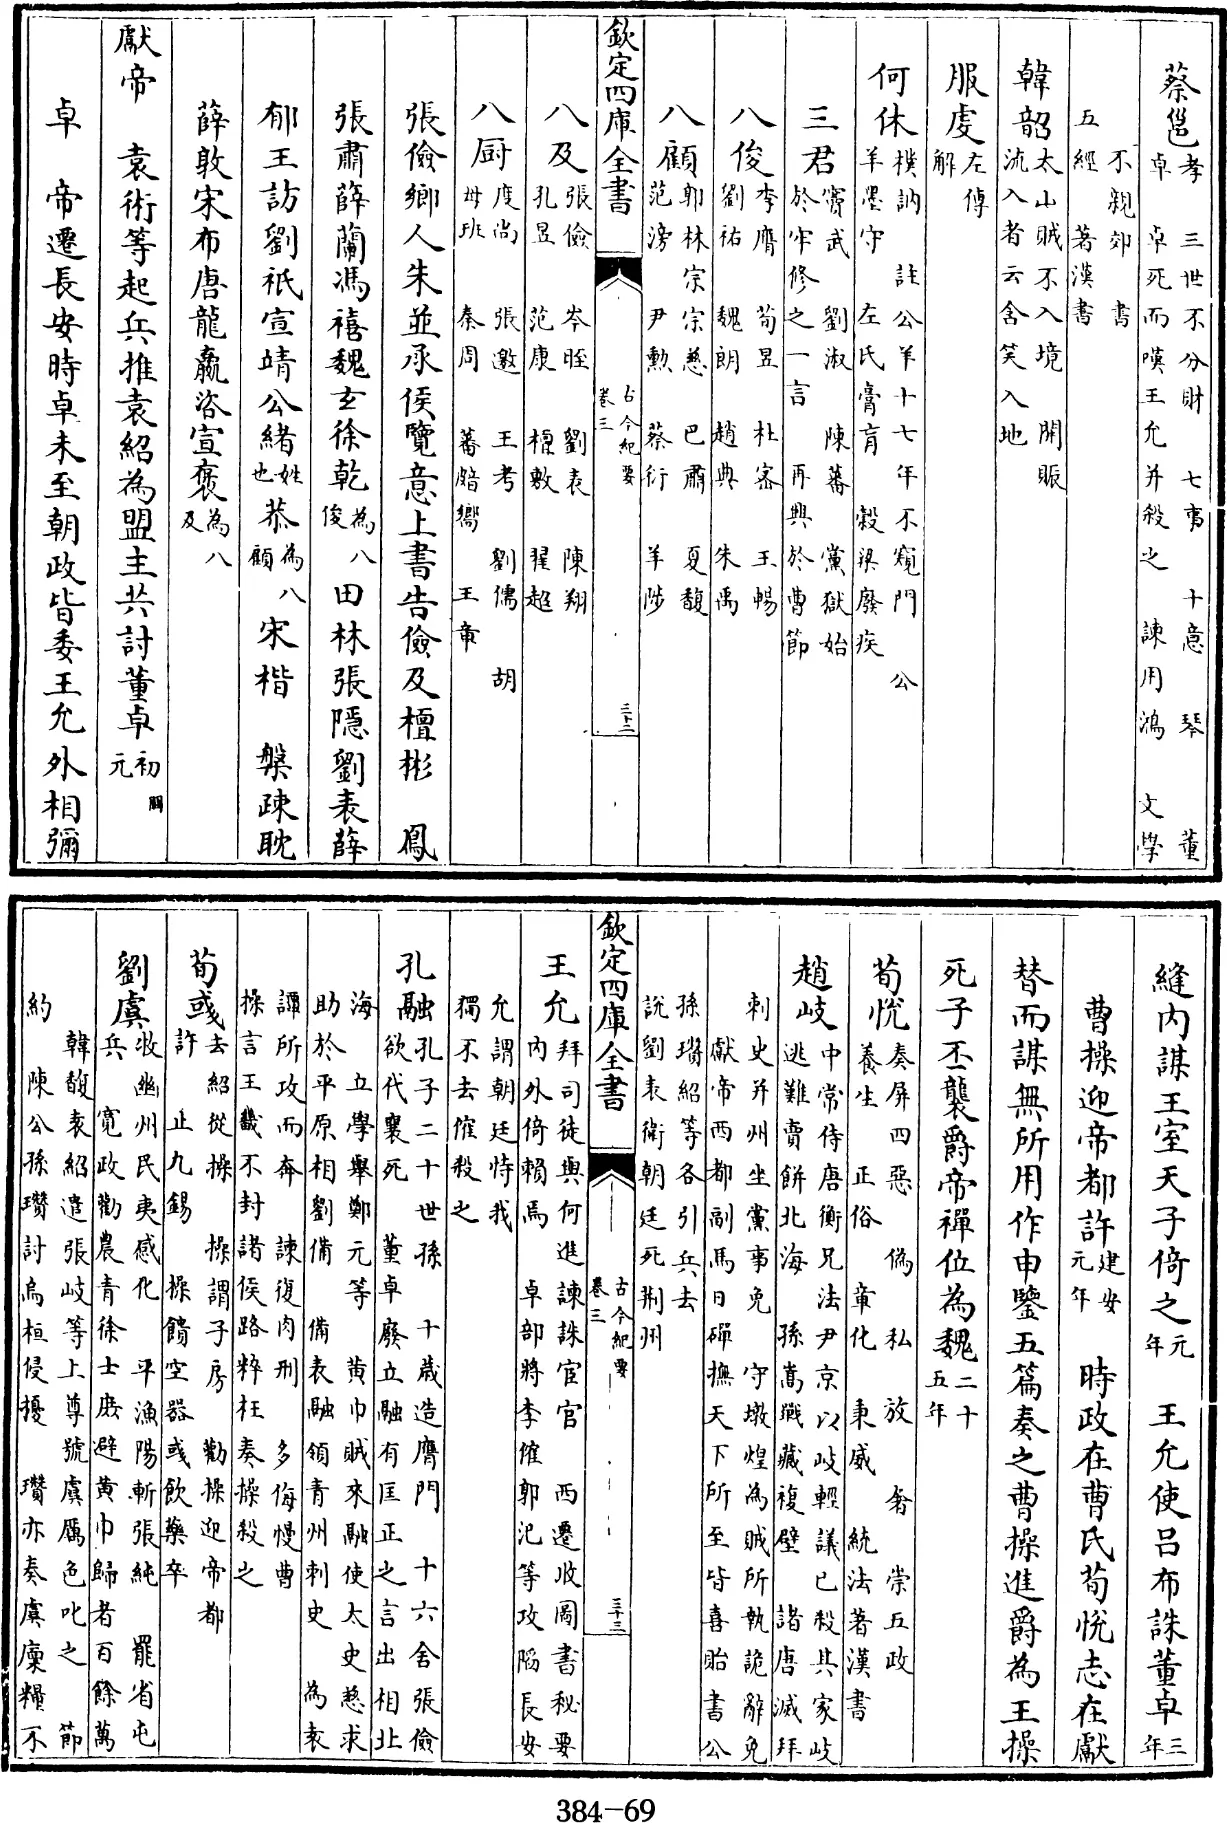 蔡邕孝 三世不分財 七事 十意 琴 董
卓 卓死而嘆王允并殺之 諫用鴻 文學
不親郊 書
五經 著漢書
韓韶太山賊不入境 開賑
流入者云含笑入地
服虔左傳
解
何休樸訥 註公羊十七年不窺門 公
羊墨守 左氏膏肓 穀梁廢疾
三君竇武 劉淑 陳蕃 黨獄始
於牢修之一言 再興於曹節
八俊李膺 荀昱 杜密 王暢
劉祐 魏朗 趙典 朱㝢
八顧郭林宗 宗慈 巴肅 夏馥
范滂 尹勲 蔡衍 羊陟
欽定四庫全書 古今紀要 卷三 三十二
八及張儉 岑晊 劉表 陳翔
孔昱 范康 檀敷 翟超
八厨度尚 張邈 王考 劉儒 胡
母班 秦周 蕃嚮 王章
張儉鄉人朱並承侯覽意上書告儉及檀彬 鳳
張肅薛蘭馮禧魏玄徐乾為八俊田林張隱劉表薛
郁王訪劉祇宣靖公緒姓也恭為八顧宋楷 槃疎耽
薛敦宋布唐龍嬴咨宣褒為八及
獻帝 袁術等起兵推袁紹為盟主共討董卓初元
卓 帝遷長安時卓未至朝政皆委王允外相彌
縫内謀王室天子倚之元年 王允使吕布誅董卓三年
曹操迎帝都許建安元年 時政在曹氏荀悦志在獻
替而謀無所用作申鑒五篇奏之曹操進爵為王操
死子丕襲爵帝禪位為魏二十五年
荀悦奏屏四惡 偽 私 放 奢 崇五政
養生 正俗 章化 秉威 統法著漢書
趙岐中常侍唐衡兄法尹京以岐輕議已殺其家岐
逃難賣餅北海 孫嵩嘁藏複壁 諸唐滅拜
刺史并州坐黨事免 守墩煌為賊所執詭辭免
獻帝西都副馬日磾撫天下所至皆喜貽書公
孫瓚紹等各引兵去
說劉表衛朝廷死荆州
欽定四庫全書 古今紀要 卷三 三十三
王允拜司徒與何進謀誅宦官 西遷收圖書秘要
内外倚賴焉 卓部將李傕郭汜等攻陷長安
允謂朝廷恃我
獨不去傕殺之
孔融孔子二十世孫 十歲造膺門 十六舍張儉
欲代襃死 董卓廢立融有匡正之言出相北
海 立學舉鄭元等 黄巾賊來融使太史慈求
助於平原相劉備 備表融領青州刺史 為袁
譚所攻而奔 諫復肉刑 多侮慢曹
操言王畿不封諸侯路粹枉奏操殺之
荀彧去紹從操 操謂子房 勸操迎帝都
許 止九錫 操饋空器彧飲藥卒
劉虞牧幽州民夷感化 平漁陽斬張純 罷省屯
兵 寛政勸農青徐士庶避黄巾歸者百餘萬
韓馥袁紹遣張岐等上尊號虞厲色叱之 節
約 陳公孫瓚討烏桓侵擾 瓚亦奏虞廩糧不
384-69